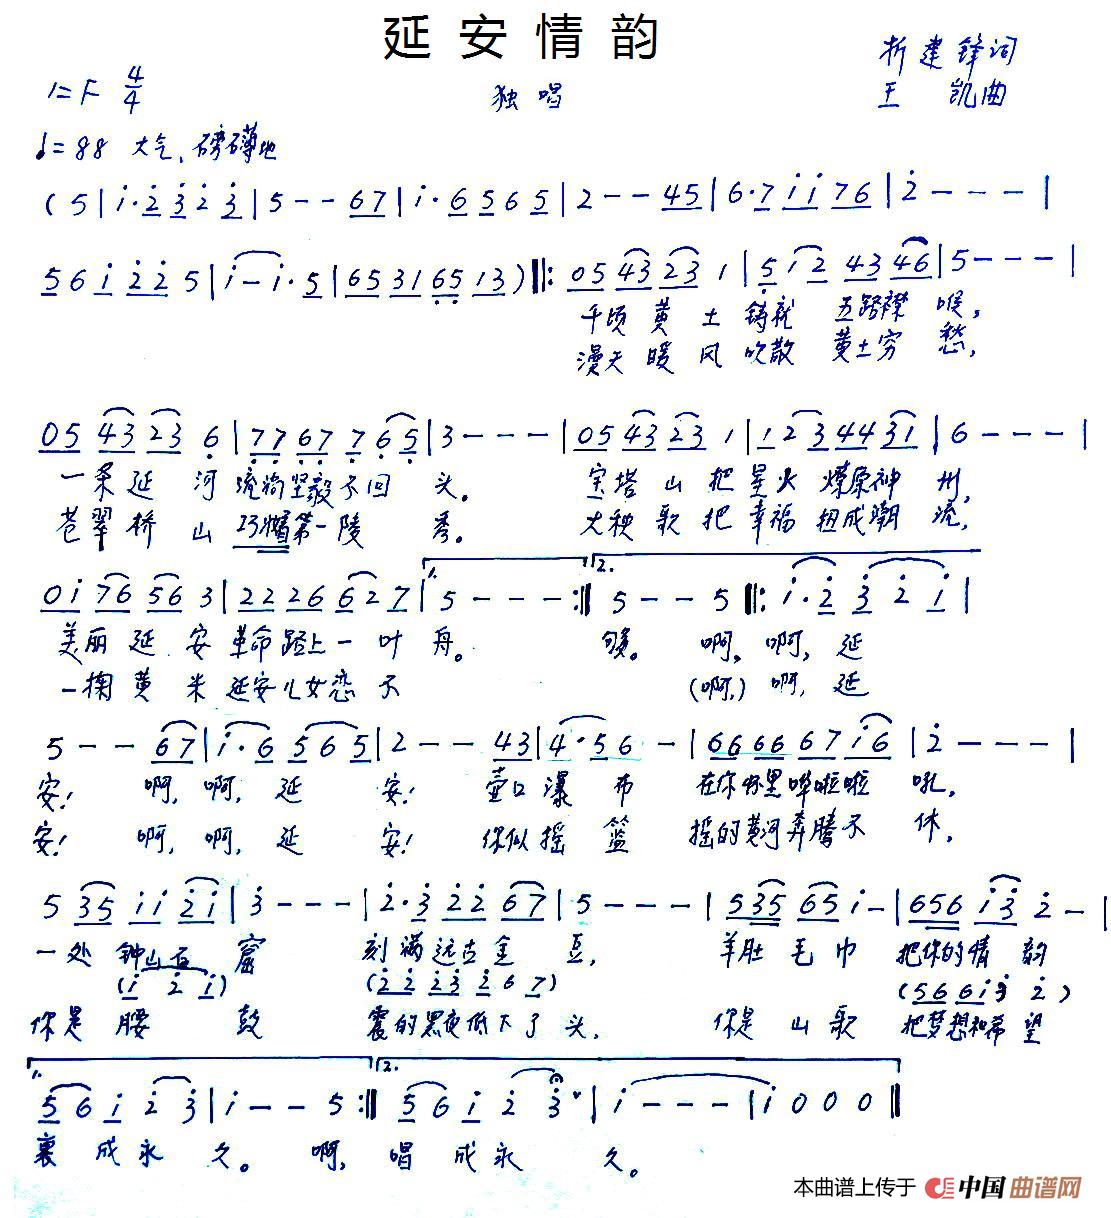 延安情韵
析建锋词
1=F 4/4
独唱
王 凯曲
♩=88 大气、磅礴地
(5|i·2 3 2 3|5--67|i·6 5 6 5|2--45|6·7 i i 7 6|2---|
5 6 i 2 2 5|i-i·5|6531 65 13)‖:05 43 23 1|5 i 2 43 46|5---|
千顷 黄 土 铸就 五路襟 喉,
漫天 暖 风 吹散 黄土穷 愁,
05 43 23 6|77 67 7 6 5|3---|05 43 23 1|1 2 3 44 31|6---|
一条 延 河 流淌坚毅不回 头。 宝塔 山 把 星火 燎原神 州,
苍翠 桥 山 第一陵 秀。 大秧 歌 把 幸福 扭成潮 流,
0i 76 56 3|222 26 6 2 7|1. 5---:‖2. 5--5‖:i·2 3 2 i|
美丽 延 安 革命路上一 叶 舟。 够。 啊,啊,延
一掬 黄 米 延安儿女恋 不 (啊,) 啊,延
5--67|i·6 5 6 5|2--43|4·5 6 -|66 66 67 i6|2---|
安! 啊,啊,延 安! 壶口瀑 布 在你怀里哗啦啦 吼,
安! 啊,啊,延 安! 你似摇 篮 摇的黄河奔腾不 休,
5 35 ii 2i|3---|2·3 22 67|5---|535 65 i-|656 i3 2-|
一处 钟山石 窟 刻满远古金 豆, 羊肚 毛 巾 把你的情 韵
(i 2 i) (22 23 2 6 7) (56 6i 3 2)
你是 腰 鼓 震的黑夜低下了 头, 你是 山 歌 把梦想和希 望
1. 5 6 i 2 3|i--5:‖2. 5 6 i 2 3|i---|i 0 0 0‖
裹 成永 久。 啊, 唱 成永 久。
本曲谱上传于 中国曲谱网